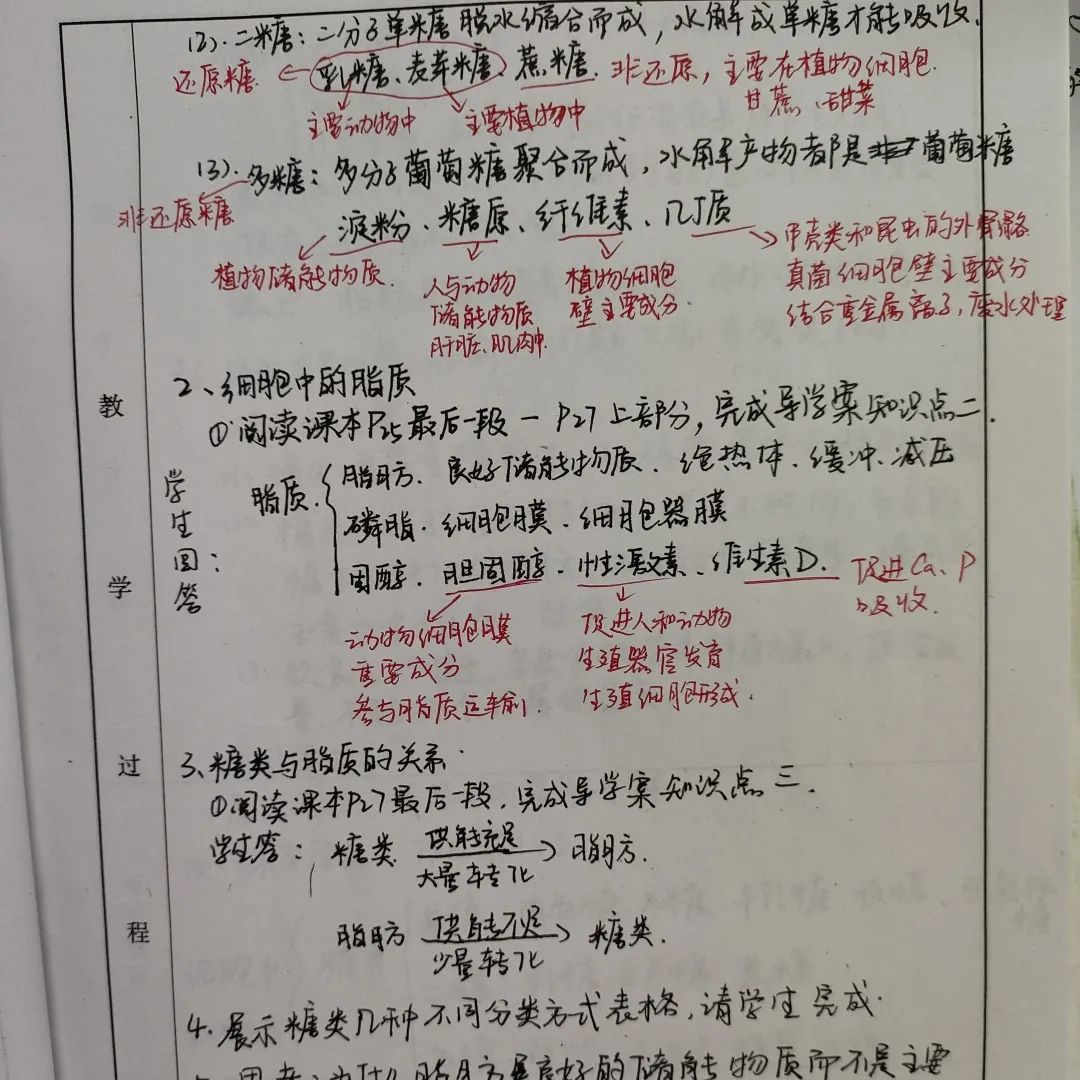 (2).二糖：二分子单糖脱水缩合而成，水解成单糖才能吸收.
还原糖 ← 乳糖、麦芽糖、蔗糖. 非还原，主要在植物细胞.
甘蔗、甜菜
主要动物中 主要植物中
(3).多糖：多分子葡萄糖聚合而成，水解产物都是葡萄糖
非还原糖
淀粉、糖原、纤维素、几丁质
植物储能物质.
人与动物
储能物质
肝脏、肌肉中.
植物细胞
壁主要成分.
甲壳类和昆虫的外骨骼
真菌细胞壁主要成分
结合重金属离子，废水处理
2、细胞中的脂质
①阅读课本P25最后一段—P27上部分，完成导学案知识点二.
学生回答：
脂质. { 脂肪. 良好储能物质、绝热体、缓冲、减压
磷脂. 细胞膜、细胞器膜
固醇. 胆固醇、性激素、维生素D.
促进Ca、P
吸收.
动物细胞膜
重要成分
参与脂质运输.
促进人和动物
生殖器官发育
生殖细胞形成.
3、糖类与脂质的关系.
①阅读课本P27最后一段，完成导学案知识点三.
学生答： 糖类 供能充足 大量转化 → 脂肪.
脂肪 供能不足 少量转化 → 糖类.
4.展示糖类几种不同分类方式表格，请学生完成.
思考：为什么脂肪是良好的储能物质而不是主要
教
学
过
程